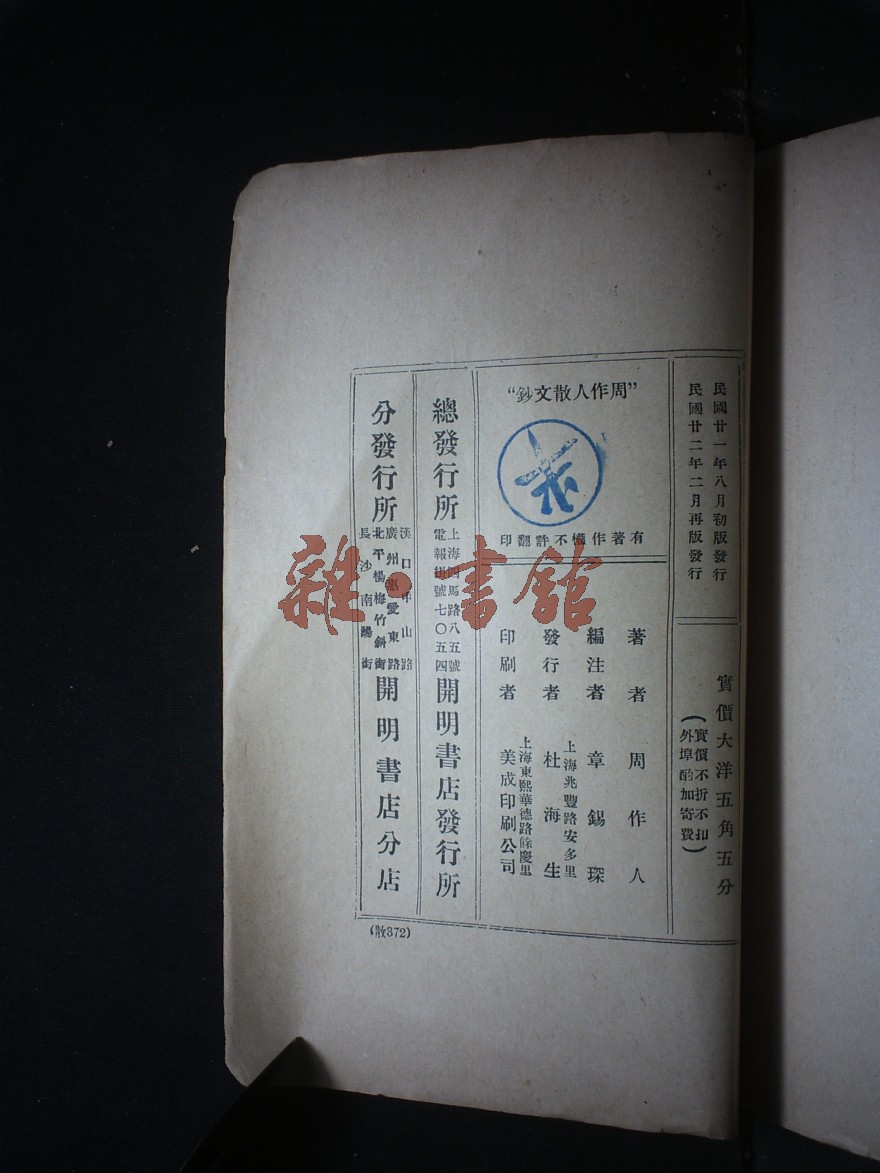 民國廿一年八月初版發行
民國廿二年二月再版發行
實價大洋五角五分
（實價不折不扣
外埠酌加寄費）
“周作人散文鈔”
有著作權不許翻印
著者 周作人
編注者 章錫琛
發行者 上海兆豐路安多里 杜海生
印刷者 上海東熙華德路餘慶里 美成印刷公司
總發行所 上海四馬路八五號 電報掛號七〇五四 開明書店發行所
分發行所 漢口中山路 廣州惠愛東路 北平楊梅竹斜街 長沙南陽街 開明書店分店
(散372)
雜·書館